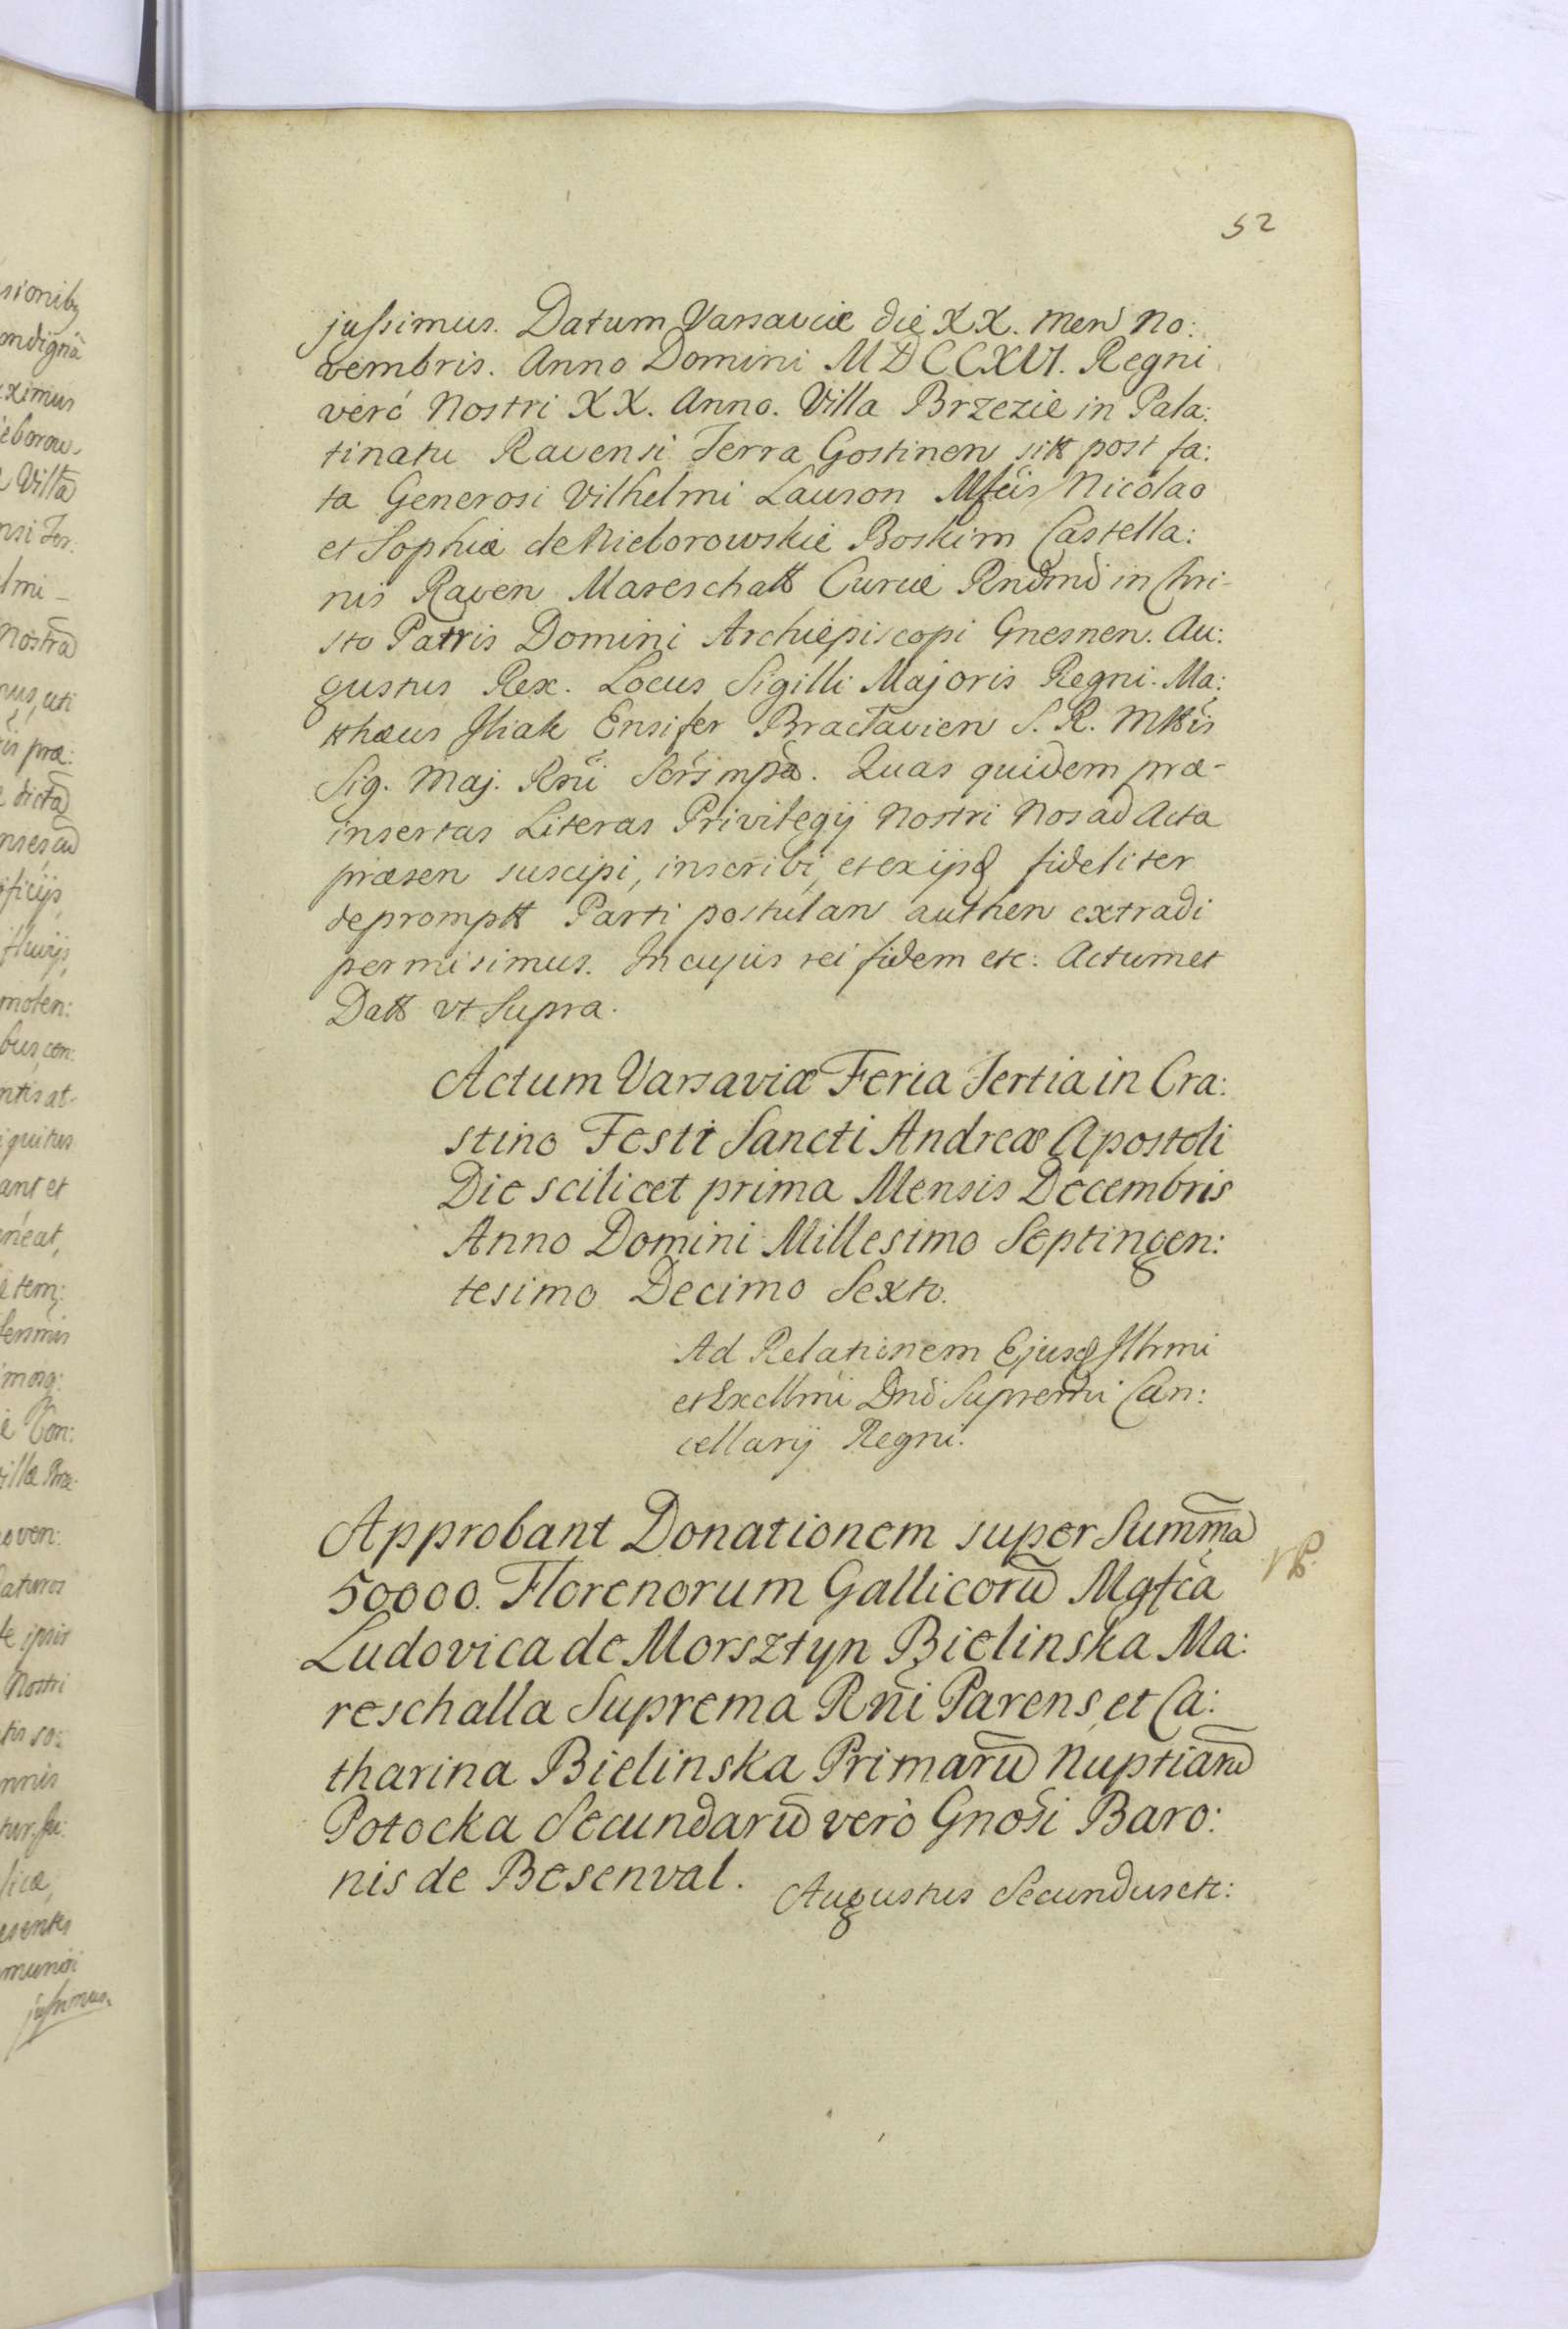 52
jussimus. Datum Varsaviæ die XX. Men No:
vembris. Anno Domini MDCCXVI. Regni
veró Nostri XX. Anno. Villa Brzezie in Pala:
tinatu Ravensi Terra Gostinen sitt post fa:
ta Generosi Vilhelmi Lauson Mfcis Nicolao
et Sophiæ de Nieborowskie Boskim Castella:
nis Raven Mareschall Curiæ Rndmd in Chri-
sto Patris Domini Archiepiscopi Gnesnen. Au:
gustus Rex. Locus Sigilli Majoris Regni. Ma:
tthæus Iliak Ensifer Bractavien S. R. Mttis
Sig. Maj. Rni Scrsmpa. Quas quidem præ-
insertas Literas Privilegij Nostri Nos ad Acta
præsen suscipi, inscribi, et ex ijsd fideliter
depromptt Parti postulan authen extradi
permisimus. In cujus rei fidem etc: Actum et
Datt vt Supra.
Actum Varsaviæ Feria Tertia in Cra:
stino Festi Sancti Andreæ Apostoli
Die scilicet prima Mensis Decembris
Anno Domini Millesimo Septingen:
tesimo Decimo Sexto.
Ad Relationem Ejusd Illrmi
et Excllmi Dnd Supremi Can:
cellarij Regni.
Approbant Donationem super Summa
50000. Florenorum Gallicoru Mgfca
Ludovica de Morsztyn Bielinska Ma:
reschalla Suprema Rni Parens, et Ca:
tharina Bielinska Primaru Nuptiaru
Potocka Secundaru verò Gnosi Baro:
nis de Besenval.
Augustus Secundus etc: